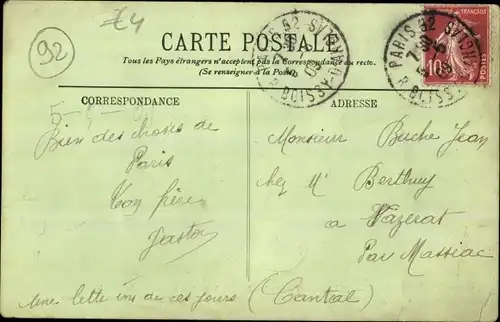 €4
92
CARTE POSTALE
Tous les Pays étrangers n'acceptent pas la Correspondance au recto.
(Se renseigner à la Poste.)
PARIS 92
R. BOISSY D'
PARIS 92
R. BOISSY
10
POSTES
CORRESPONDANCE
ADRESSE
Bien des choses de
Paris
Ton frère
Gaston
Une lettre un de ces jours
Monsieur Buche Jean
chez Mr Berthuy
a Vazerat
Par Massiac
(Cantal)